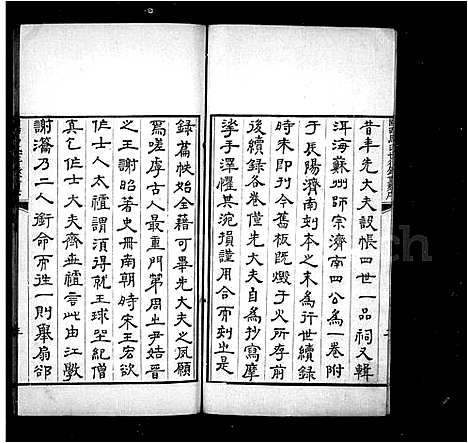 昔年先大夫設帳四世一品祠又輯
洱海蘇州師宗濟南四公為一卷附
于長陽濟南刻本之末為行世續錄
時未即刊今舊板既燬于火所存前
後續錄各卷僅先大夫自為抄寫摩
挲手澤懼其洓損謹用合而刻之是
錄篇帙始全藉可畢先大夫之夙願
焉嗟虖古人最重門第周之尹姞晉
之王謝昭著史冊南朝時宋王宏欲
作士人太禮謂須得就王球坐紀僧
真乞作士大夫齊無禮言此由江斆
謝瀹乃二人銜命而往一則舉扇卻